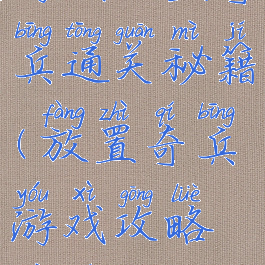 bīng tōng guān mì jí
兵通关秘籍
fàng zhì qí bīng
(放置奇兵
yóu xì gōng lüè
游戏攻略